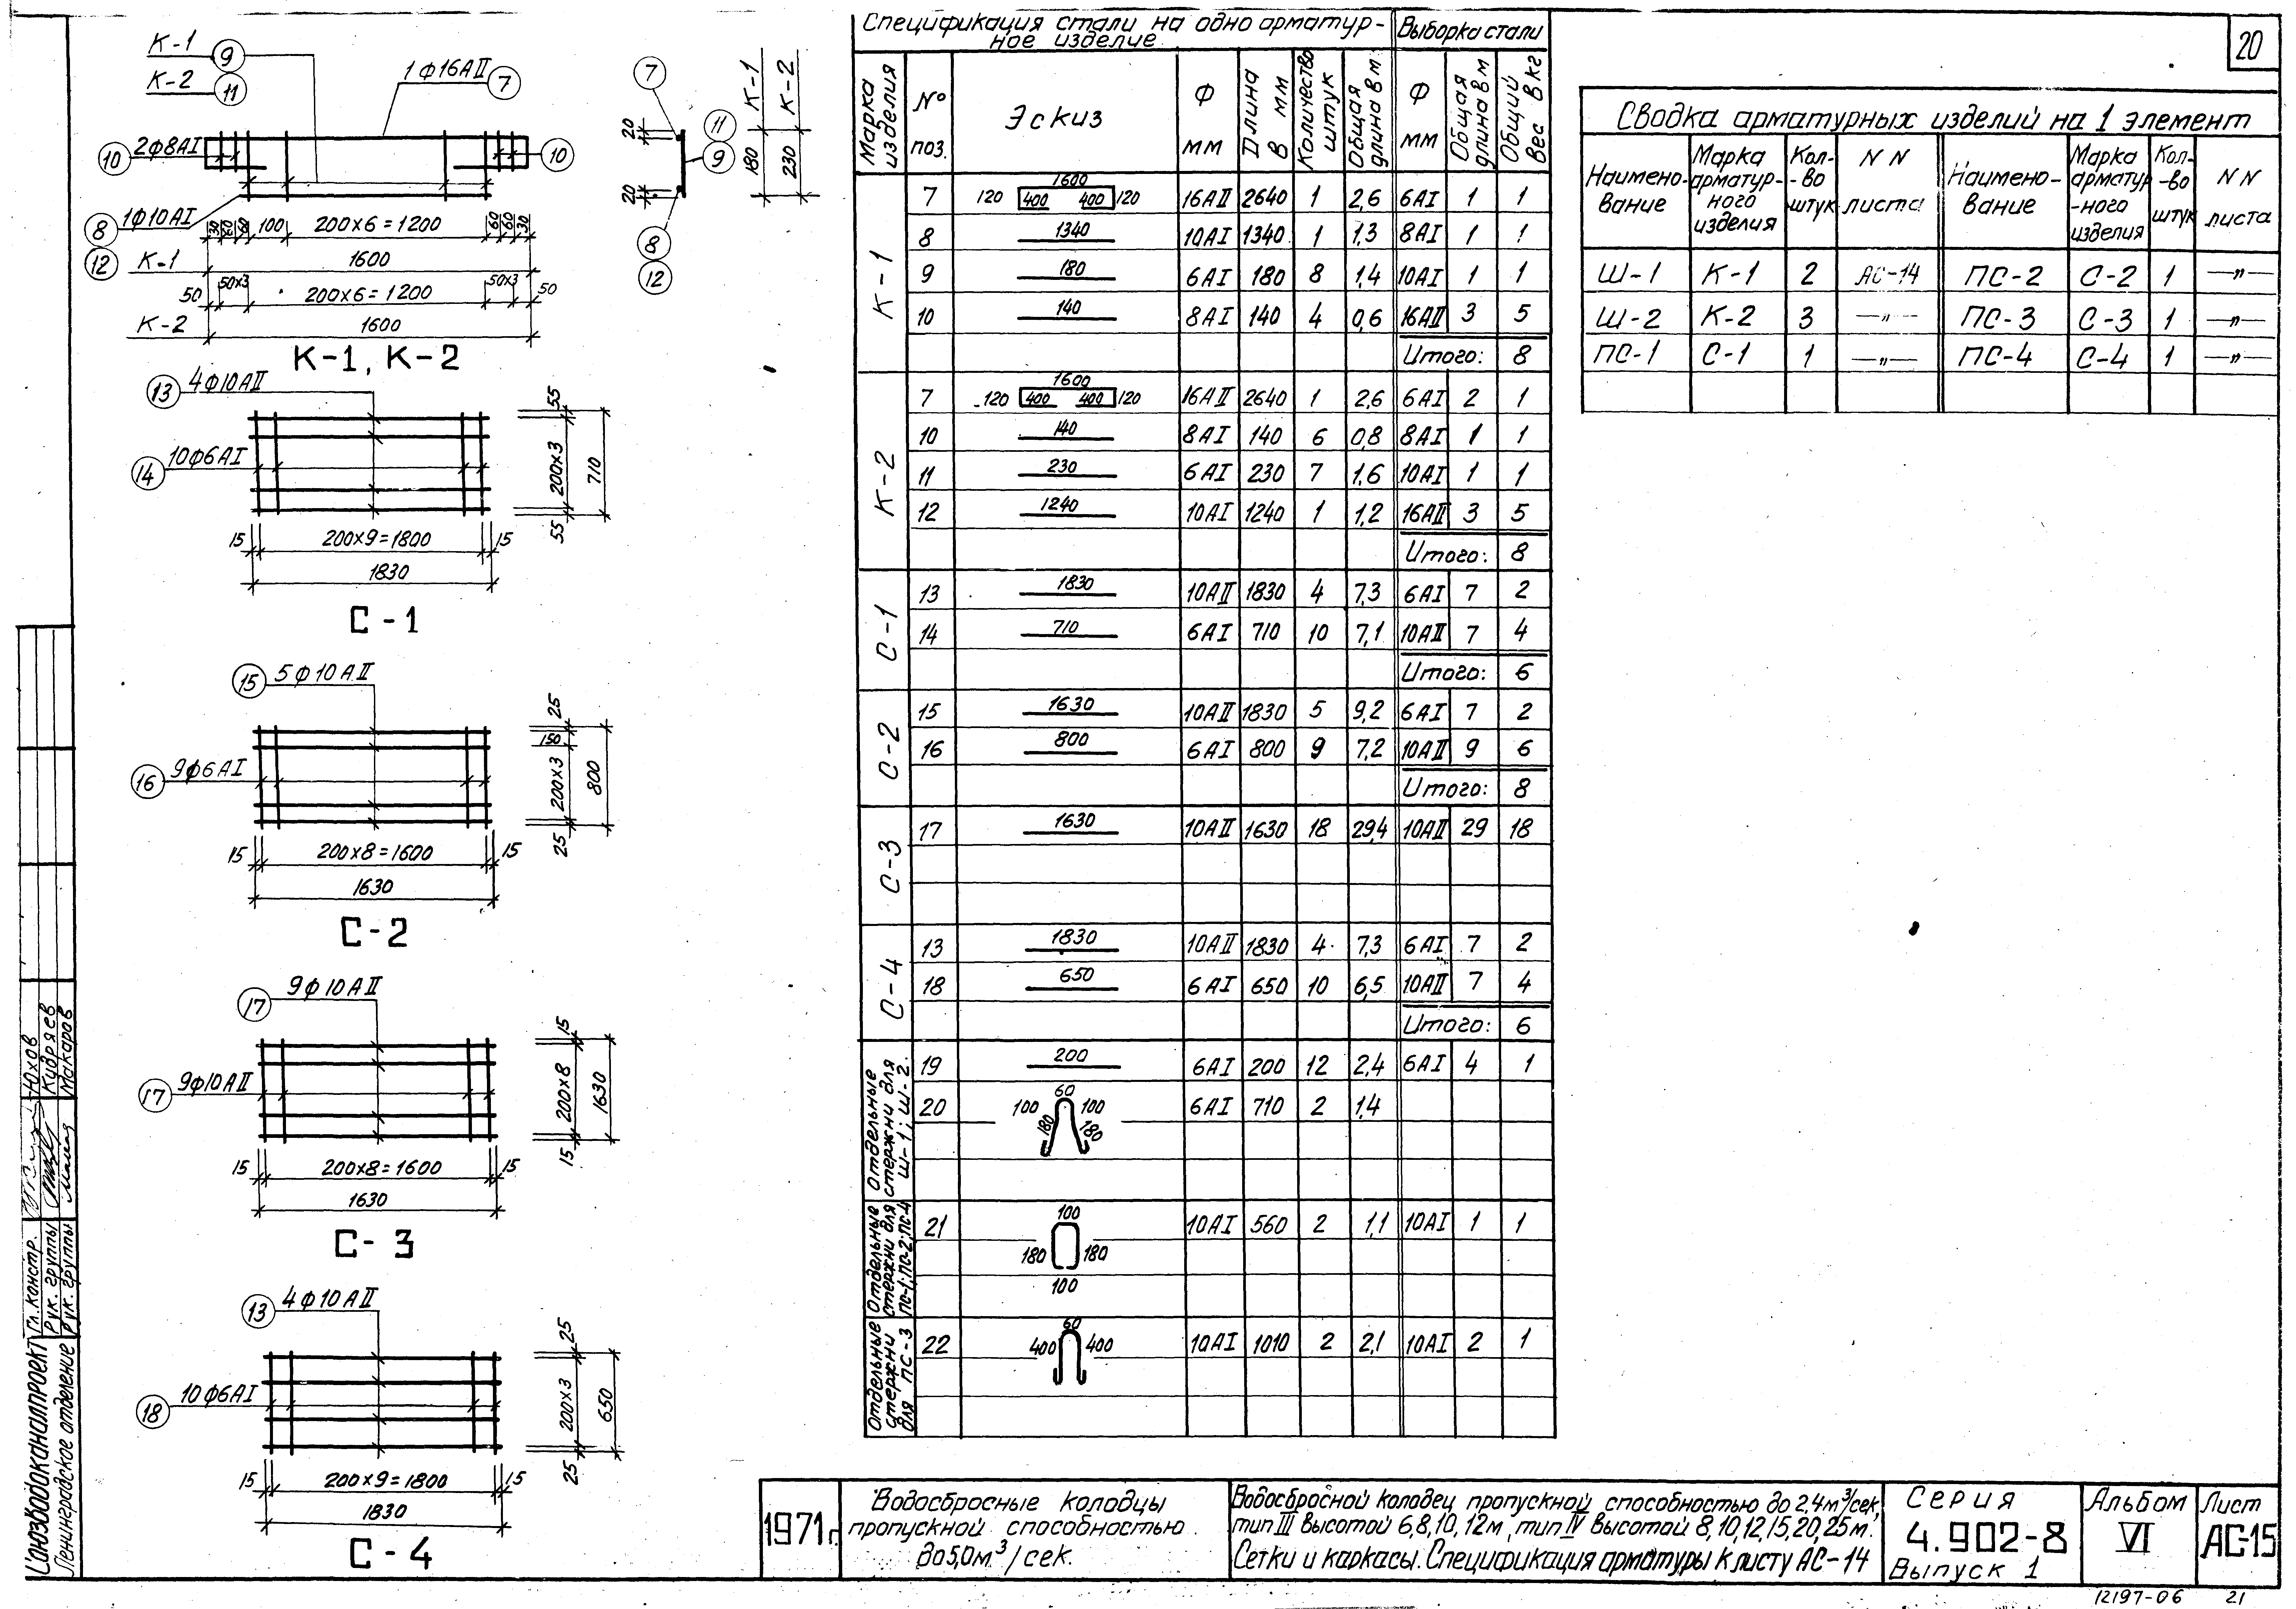 20
К-1
9
К-2
11
1ф16АII
7
2ф8АI
10
10
1ф10АI
8
12
30 60 60 100 200х6=1200 60 60 30
К-1
1600
50 50х3 200х6=1200 50х3 50
К-2
1600
К-1, К-2
7
20
20
11
9
8
12
180 К-1
230 К-2
13
4ф10АII
14
10ф6АI
55
200х3
55
710
15 200х9=1800 15
1830
С-1
15
5ф10АII
16
9ф6АI
25
150
200х3
25
800
15 200х8=1600 15
1630
С-2
17
9ф10АII
17
9ф10АII
15
200х8
15
1630
15 200х8=1600 15
1630
С-3
13
4ф10АII
18
10ф6АI
25
200х3
25
650
15 200х9=1800 15
1830
С-4
Спецификация стали на одно арматур-
ное изделие
Выборка стали
Марка изделия
№ поз.
Эскиз
Ф мм
Длина в мм
Количество штук
Общая длина в м
Ф мм
Общая длина в м
Общий вес в кг
К-1
7 120 1600 400 400 120 16АII 2640 1 2,6 6АI 1 1
8 1340 10АI 1340 1 1,3 8АI 1 1
9 180 6АI 180 8 1,4 10АI 1 1
10 140 8АI 140 4 0,6 16АII 3 5
Итого: 8
К-2
7 120 1600 400 400 120 16АII 2640 1 2,6 6АI 2 1
10 140 8АI 140 6 0,8 8АI 1 1
11 230 6АI 230 7 1,6 10АI 1 1
12 1240 10АI 1240 1 1,2 16АII 3 5
Итого: 8
С-1
13 1830 10АII 1830 4 7,3 6АI 7 2
14 710 6АI 710 10 7,1 10АII 7 4
Итого: 6
С-2
15 1630 10АII 1830 5 9,2 6АI 7 2
16 800 6АI 800 9 7,2 10АII 9 6
Итого: 8
С-3
17 1630 10АII 1630 18 29,4 10АII 29 18
С-4
13 1830 10АII 1830 4 7,3 6АI 7 2
18 650 6АI 650 10 6,5 10АII 7 4
Итого: 6
Отдельные стержни для Ш-1; Ш-2.
19 200 6АI 200 12 2,4 6АI 4 1
20 60 100 100 180 180 6АI 710 2 1,4
Отдельные стержни для ПС-1; ПС-2; ПС-4
21 100 180 180 100 10АI 560 2 1,1 10АI 1 1
Отдельные стержни для ПС-3
22 60 400 400 10АI 1010 2 2,1 10АI 2 1
Сводка арматурных изделий на 1 элемент
Наимено-вание
Марка арматур-ного изделия
Кол-во штук
NN листа
Наимено-вание
Марка арматур-ного изделия
Кол-во штук
NN листа
Ш-1 К-1 2 АС-14 ПС-2 С-2 1 —"—
Ш-2 К-2 3 —"— ПС-3 С-3 1 —"—
ПС-1 С-1 1 —"— ПС-4 С-4 1 —"—
Союзводоканалпроект
Ленинградское отделение
Гл. констр.
Рук. группы
Рук. группы
Юхов
Кудряев
Макаров
1971г.
Водосбросные колодцы
пропускной способностью
до 5,0м³/сек.
Водосбросной колодец пропускной способностью до 2,4м³/сек,
тип III высотой 6,8,10,12м, тип IV высотой 8,10,12,15,20,25м.
Сетки и каркасы. Спецификация арматуры к листу АС-14
Серия
4.902-8
Выпуск 1
Альбом
VI
Лист
АС-15
12197-06 21